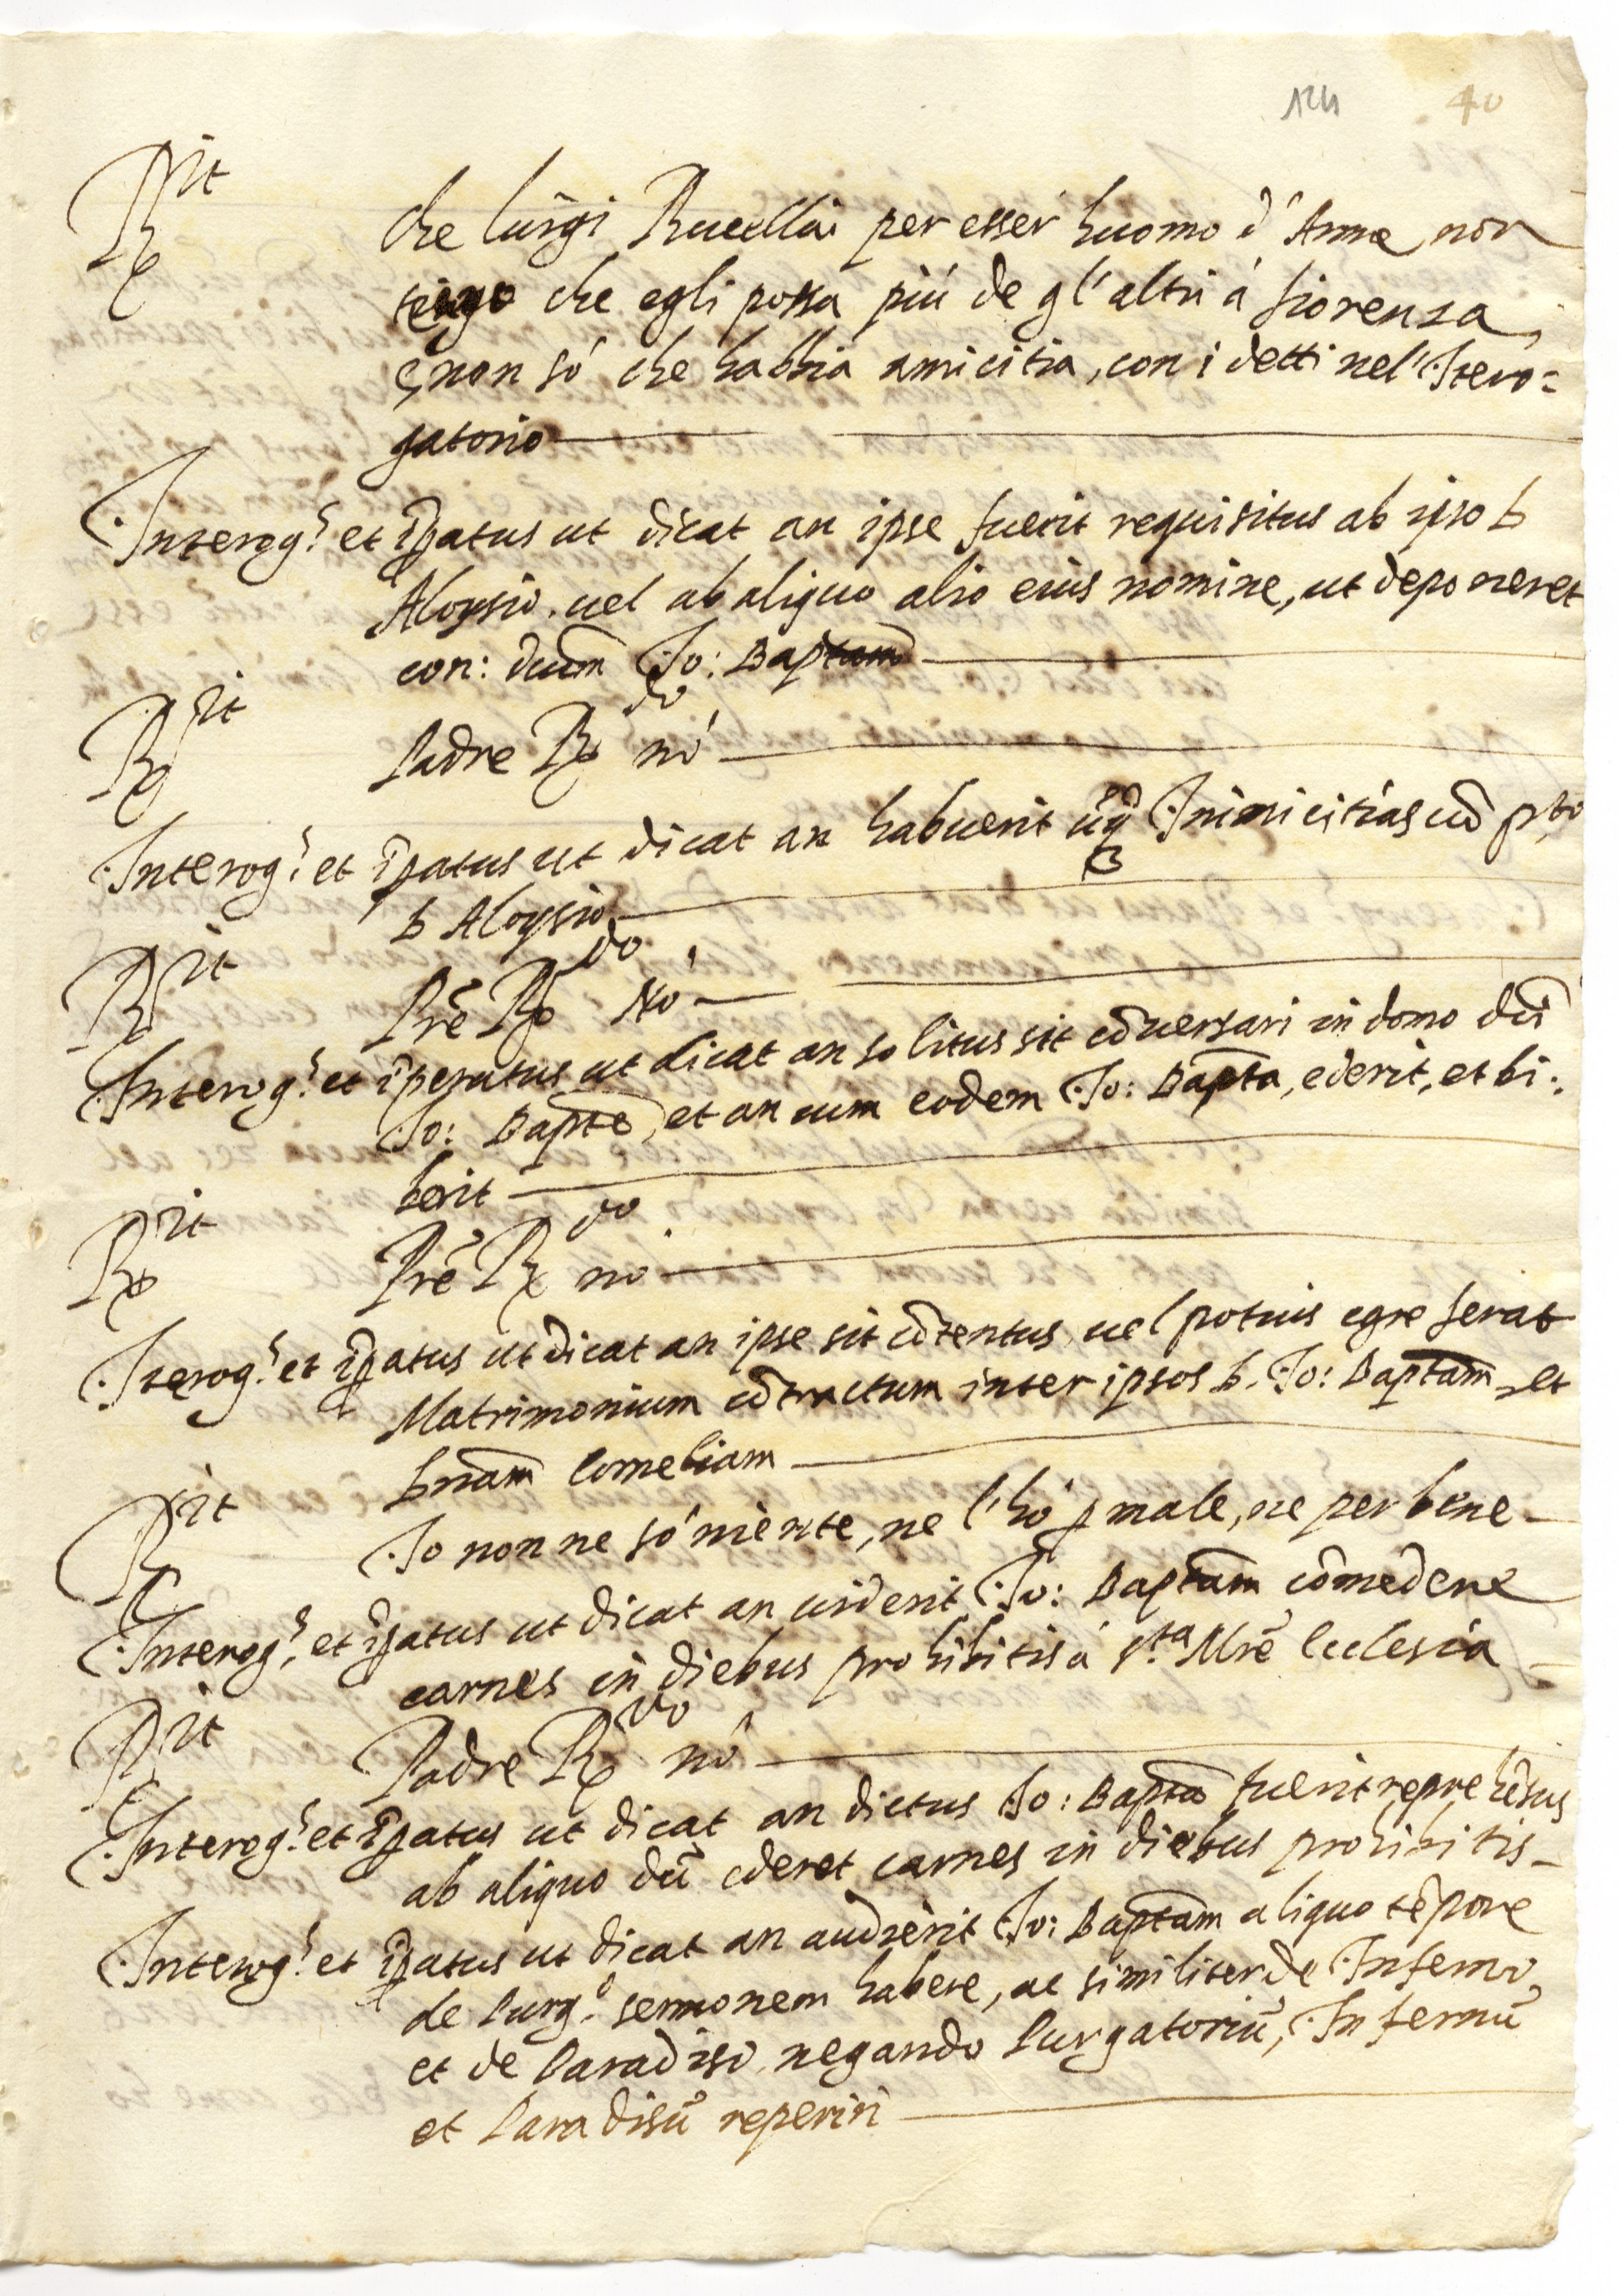 124 40
Rx.it che luigi Rucellai per esser huomo d'Arme, non
tengo che egli possa più de gl'altri à fiorenza,
e non só che habbia amicitia, con i detti nel'Itero=
gatorio
Interog.s et ip̄atus ut dicat an ipse fuerit requisitus ab ipso D
Aloysio. uel ab aliquo alio eius nomine, ut deponeret
con: dictum Io: Baptam
Rx.it Padre Rx.do nò
Interog.s et ip̄atus ut dicat an habuerit ūq Inimicitias cū p.to
D Aloysio
Rx.it Prē Rx.do Nò
Interog.s et iperatus ut dicat an solitus sit cōuersari in domo dc̄i
Io: Baptē, et an cum eodem Io: Bapta, ederit, et bi:
berit
Rx.it Prē Rx.do nò
Iterog.s et ip̄atus ut dicat an ipse sit cōtentus, uel potuis egre ferat
Matrimonium cōtractum inter ipsos D. Io: Baptam, et
Dnam Corneliam
Rx.it Io non ne só niente, ne l'hó p male, ne per bene
Interog.s, et ip̄atus ut dicat an uiderit Io: Baptam cōmedere
carnes in diebus prohibitis á S.ta Mrē Ecclesia
Rx.it Padre Rx.do nò
Interog.s et ip̄atus ut dicat an dictus Io: Bapta fuerit reprehēsus
ab aliquo dū ederet carnes in diebus prohibitis
Interog.s et ip̄atus ut dicat an audierit Io: Baptam aliquo tēpore
de Purg.o sermonem habere, ac similiter de Inferno,
et de Paradiso, negando Purgatoriū, Infernū
et Paradisū reperiri